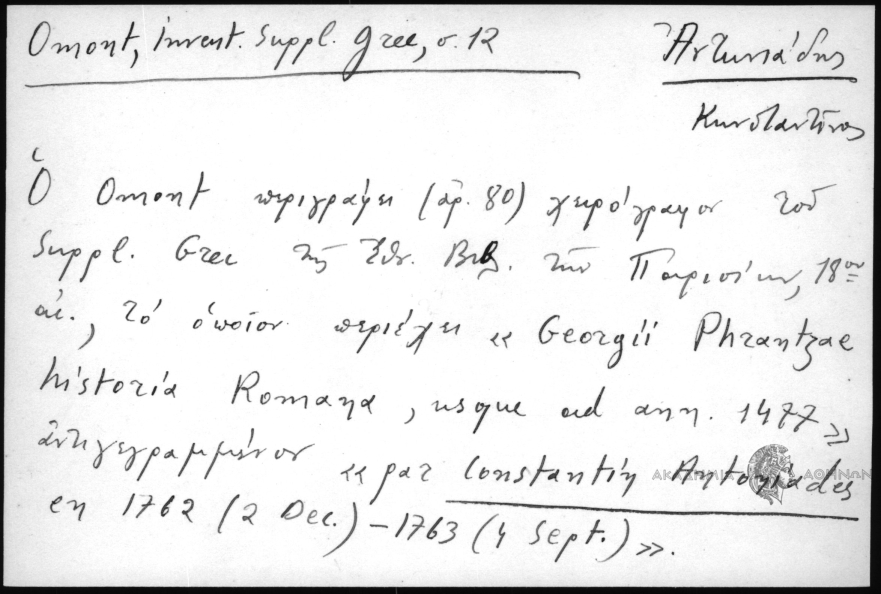 Omont, invent. Suppl. Grec, σ. 12
Ἀντωνιάδης
Κωνσταντῖνος
Ὁ Omont περιγράφει (ἀρ. 80) χειρόγραφον τοῦ
Suppl. Grec τῆς Ἐθν. Βιβ. τῶν Παρισίων, 18ου
αἰ., τὸ ὁποῖον περιέχει «Georgii Phrantzae
historia Romana, usque ad ann. 1477»
ἀντιγεγραμμένον «par Constantin Antoniádes
en 1762 (2 Dec.) – 1763 (4 Sept.)».
ΑΚΑΔΗΜΙΑ ΑΘΗΝΩΝ